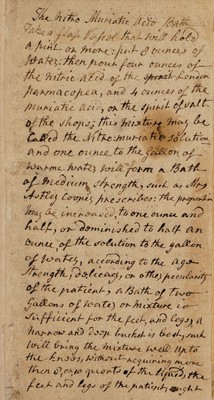 The Nitro Muriatic Acid Bath
Take a glass vessel that will hold
a pint or more: put 8 ounces of
Water: then pour four ounces of
the nitric acid of the London
parmacopea, and 4 ounces of the
muriatic acid, or the spirit of salt
of the shops; this mixture may be
Called the Nitro muriatic solution
and one ounce to the Gallon of
warme water will form a Bath
of medium strength, such as Mr
Astley Cooper prescribes: the proportion
may be increased to one ounce and
half, or dominished to half an
ounce, of the solution to the gallon
of water, according to the age
Strength, delicacy, or other peculiarity
of the patient; a Bath of two
Gallons of water or mixture is
Sufficient for the feet and legs; a
narrow and deep bucket is best, such
will bring the mixture well up to
the knees, without requiring more
then quants of the liquid; the
feet and legs of the patient, ought